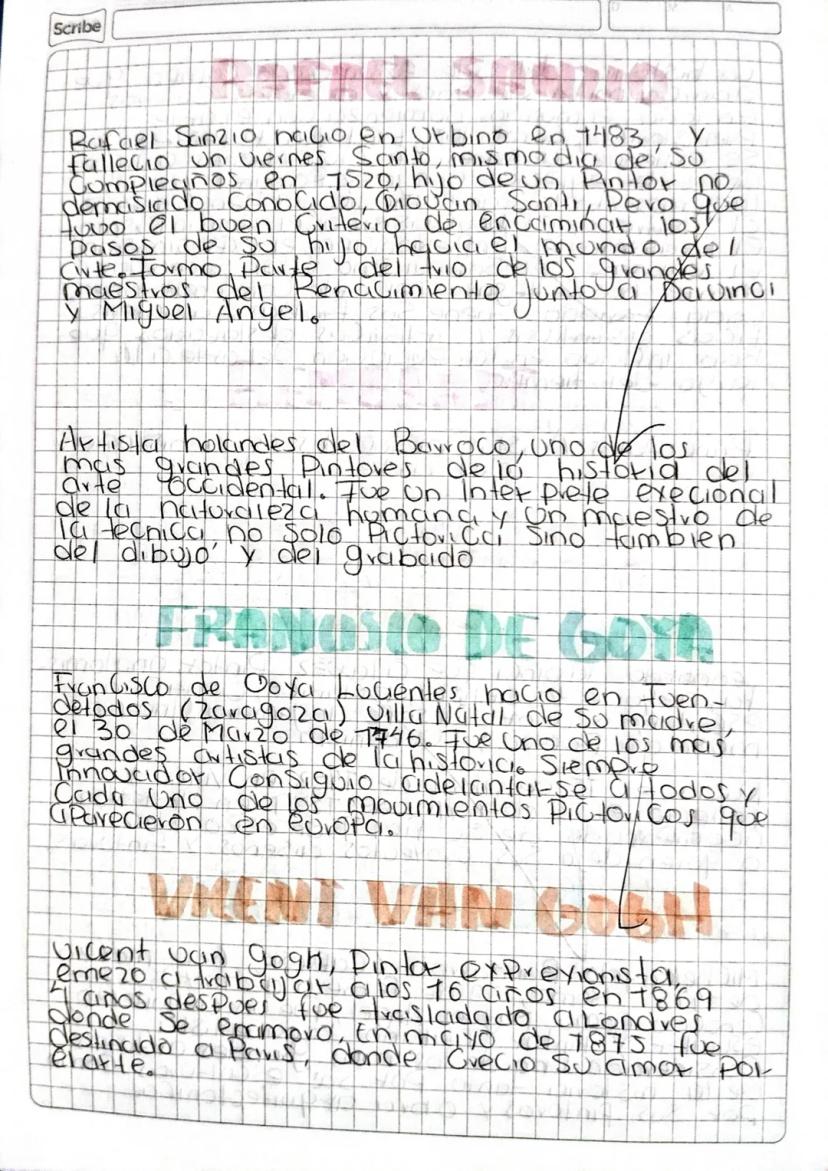 Scribe
RAFAEL SANZIO
Rafael Sanzio nacio en Urbino en 1483, y
fallecio un viernes Santo, mismo dia de su
Cumpleaños en 1520, hijo de un Pintor no
demasiado Conocido, Giovan Santi, Pero que
tuvo el buen Criterio de encaminar los
Pasos de su hijo hacia el mundo del
arte. Formo Parte del trio de los grandes
maestros del Renacimiento junto a Davinci
y Miguel Angel.
Artista holandes del Barroco, uno de los
mas grandes Pintores de la historia del
arte occidental. Fue un Inter Prete execional
de la naturaleza humana y un maestro de
la tecnica no solo Pictorica sino tambien
del dibujo y del grabado
FRANCISCO DE GOYA
Francisco de Goya Lucientes nacio en Fuen-
detodos (Zaragoza) Villa Natal de su madre,
el 30 de Marzo de 1746. Fue uno de los mas
grandes artistas de la historia. Siempre
Innovador Consiguio adelantarse a todos y
Cada uno de los movimientos Pictoricos que
aparecieron en europa.
VICENT VAN GOGH
Vicent van gogh, Pintor exprexionista,
emezo a trabajar a los 16 años en 1869
4 años despues fue trasladado a Londres
donde se enamoro, En mayo de 1875 fue
destinado a Paris, donde Crecio su amor por
el arte.